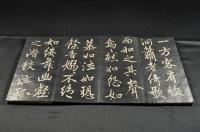 一方客有吹
洞簫者倚歌
而和之其聲
嗚然如怨如
慕如泣如訴
餘音嫋不絕
如縷舞幽壑
之潛蛟泣孤